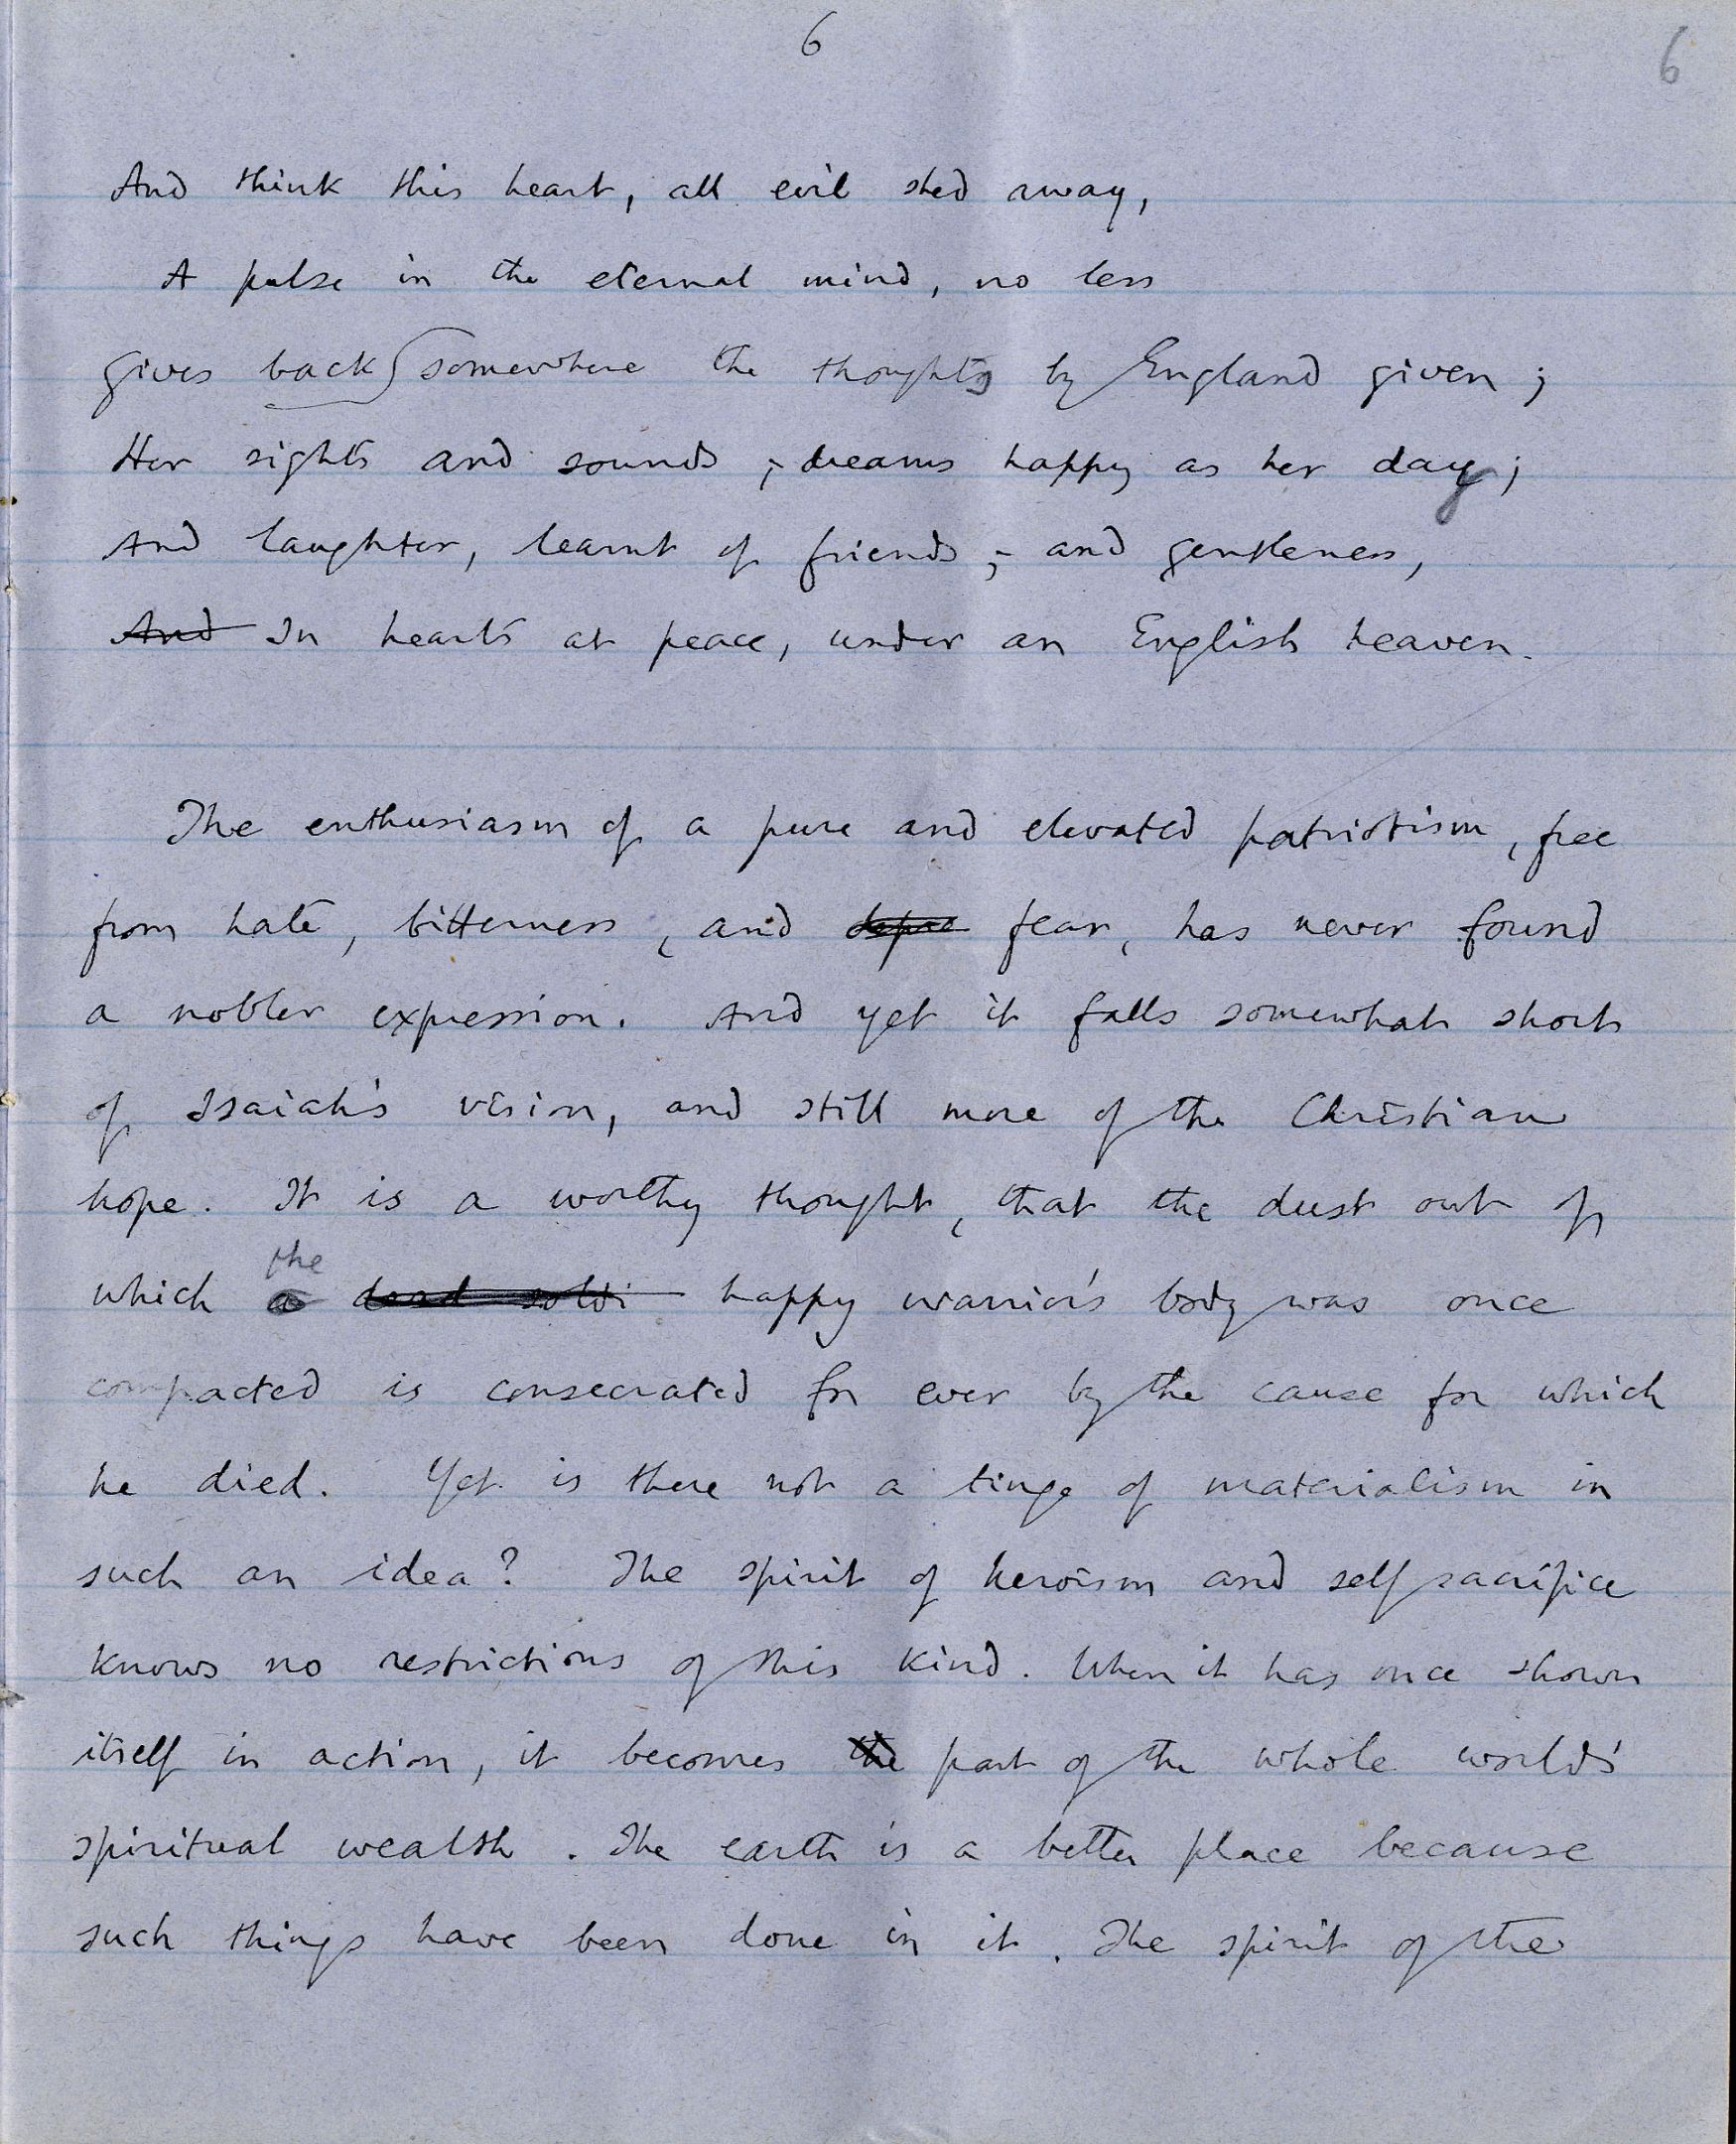 6 6
And think this heart, all evil shed away,
A pulse in the eternal mind, no less
Gives back somewhere the thoughts by England given;
Her sights and sounds; dreams happy as her day;
And laughter, learnt of friends; and gentleness,
And In hearts at peace, under an English heaven.
The enthusiasm of a pure and elevated patriotism, free
from hate, bitterness, and fear, has never found
a nobler expression. And yet it falls somewhat short
of Isaiah's vision, and still more of the Christian
hope. It is a worthy thought, that the dust out of
the
which a dead soldi happy warrior's body was once
compacted is consecrated for ever by the cause for which
he died. Yet is there not a tinge of materialism in
such an idea? The spirit of heroism and self sacrifice
knows no restrictions of this kind. When it has once shown
itself in action, it becomes the part of the whole world's
spiritual wealth. The earth is a better place because
such things have been done in it. The spirit of the